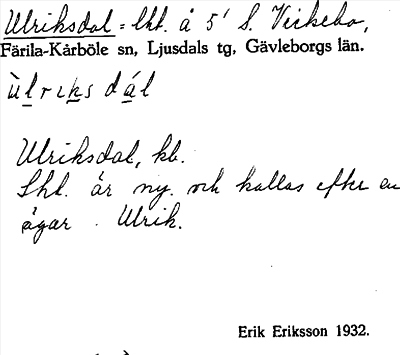 Ulriksdal = lht. å 5' S. Veckebo,
Färila-Kårböle sn, Ljusdals tg, Gävleborgs län.
ùlriks dál
Ulriksdal, kb.
Lht. är ny och kallas efter en
ägar. Ulrik.
Erik Eriksson 1932.